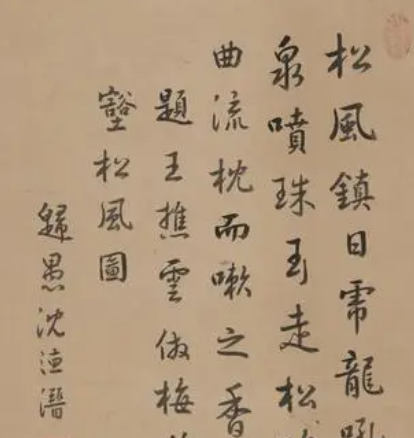 松風鎮日龍
泉噴珠玉走松
曲流枕而嗽之香
題王樵雲倣梅
壑松風圖
歸愚沈德潛